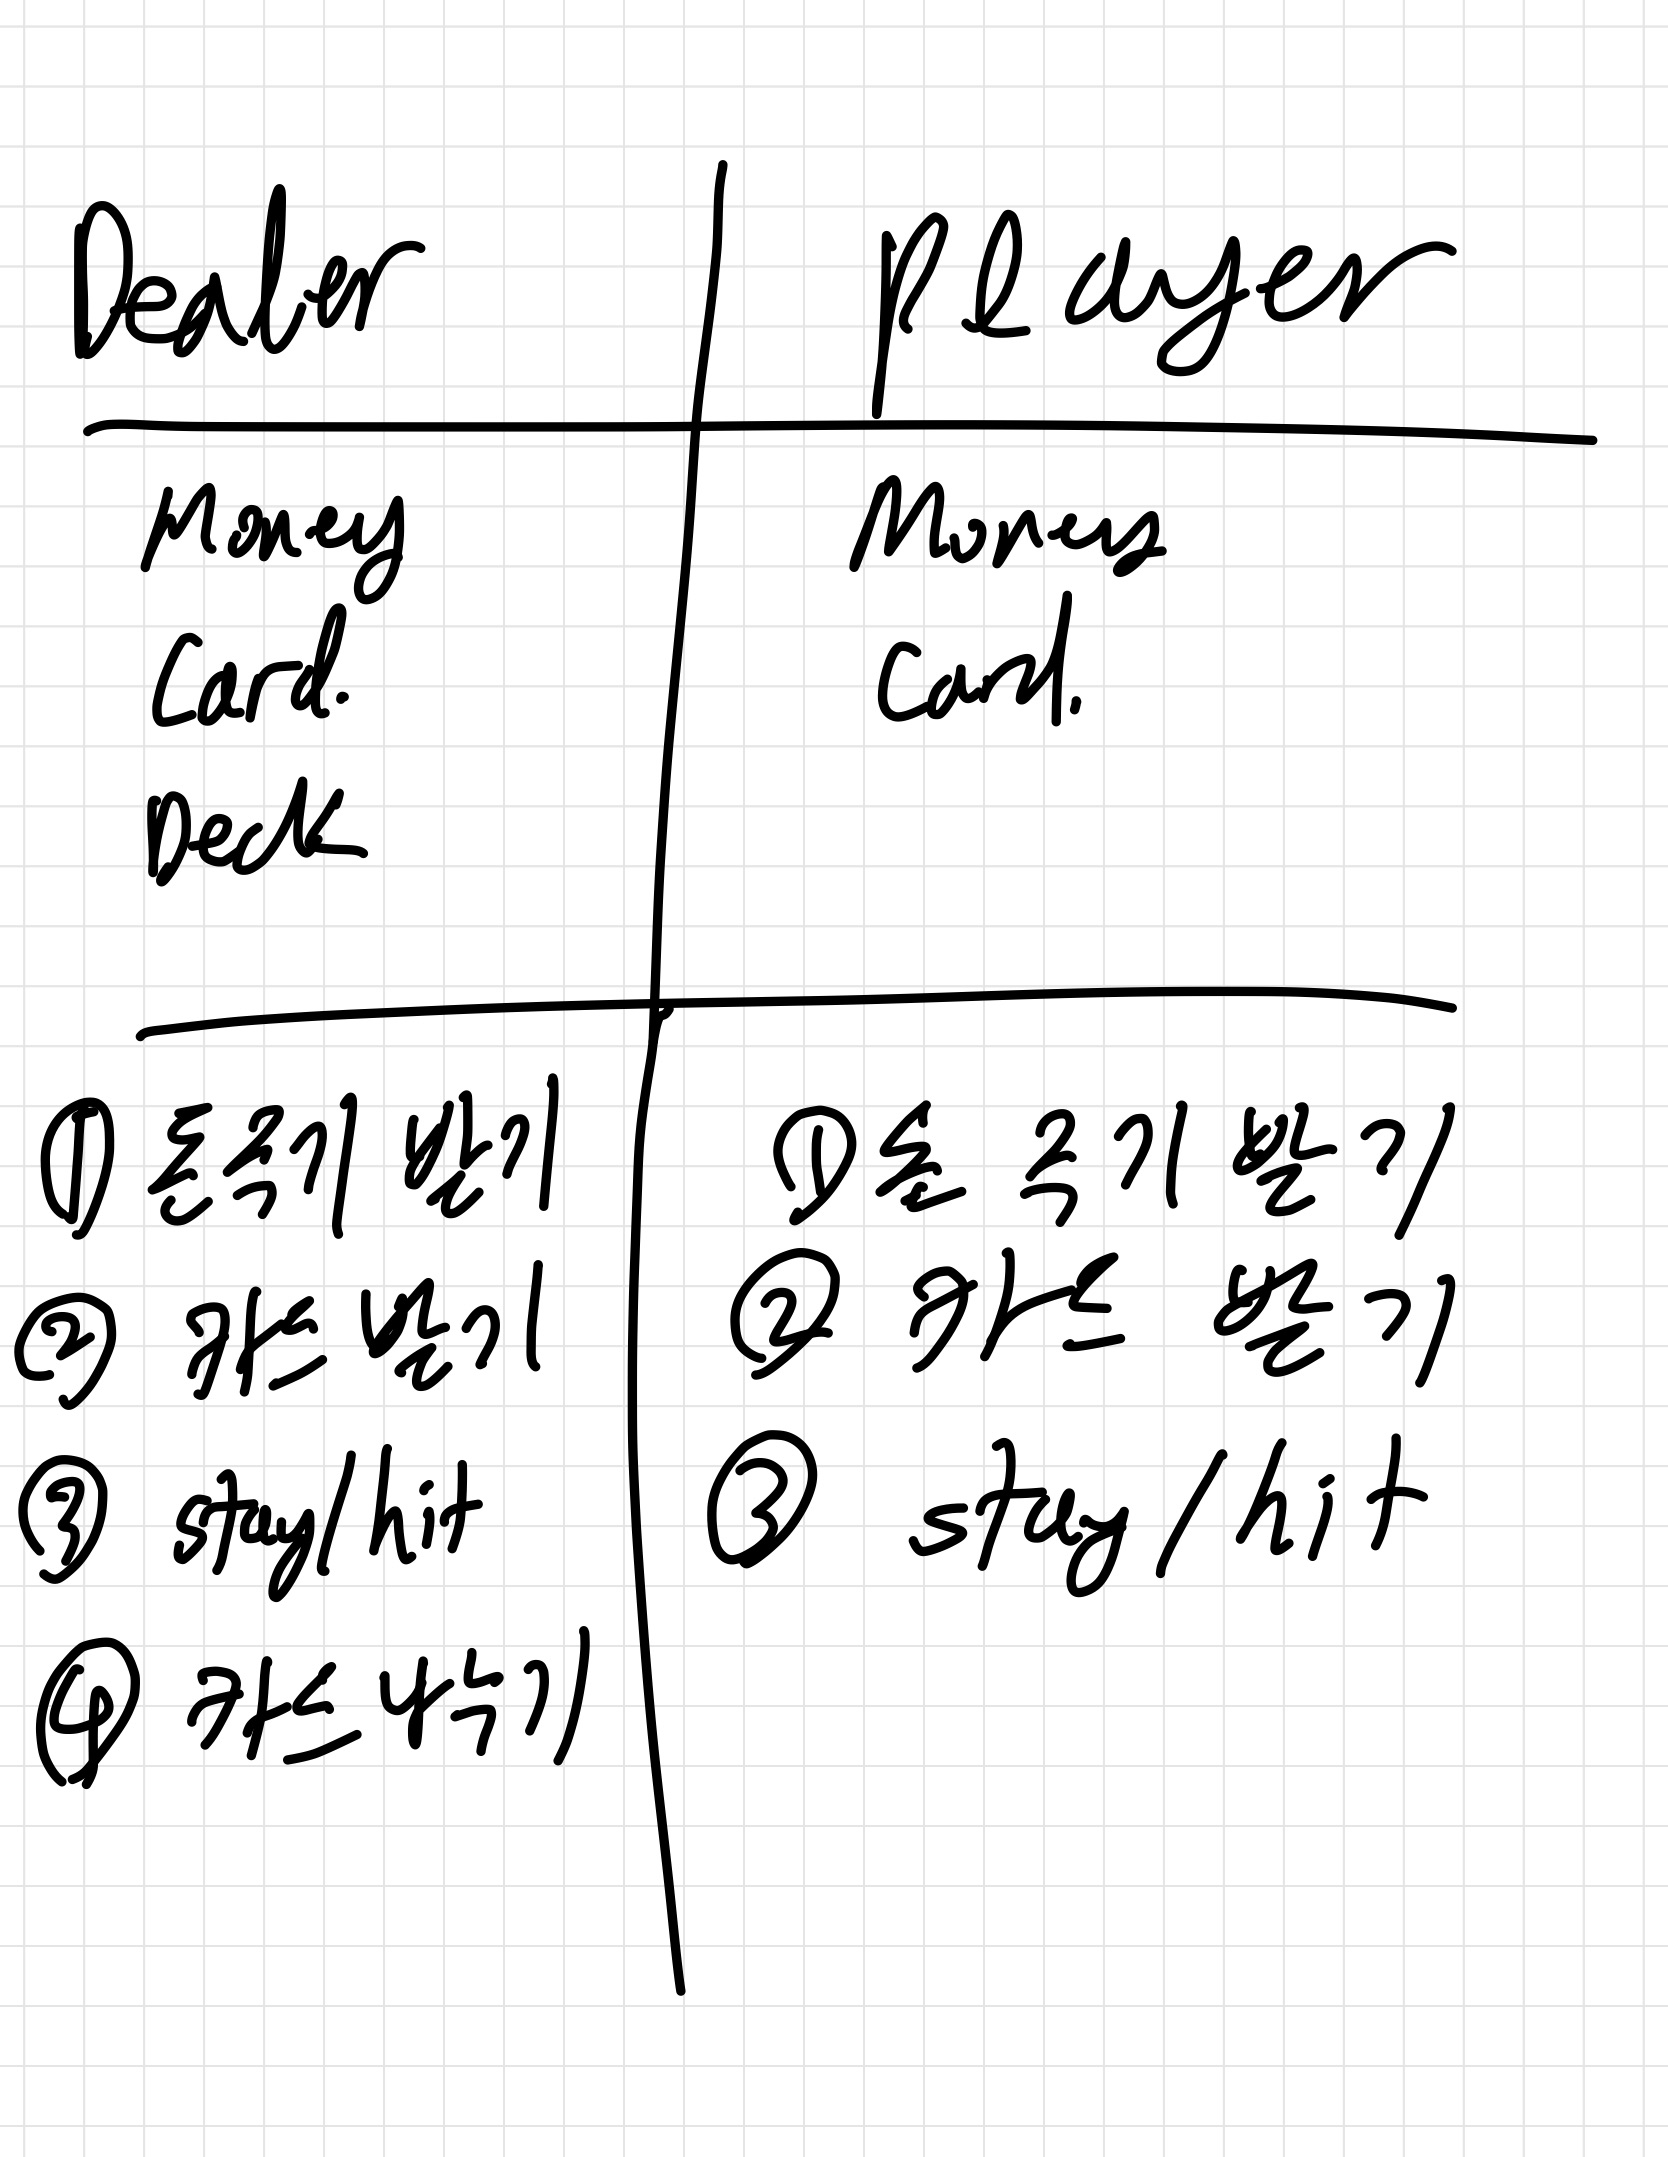 Dealer
Player
Money
Card.
Deck
Money
Card.
① 돈 주기 받기
② 카드 받기
③ stay/hit
④ 카드 나누기
① 돈 주기 받기
② 카드 받기
③ stay/hit